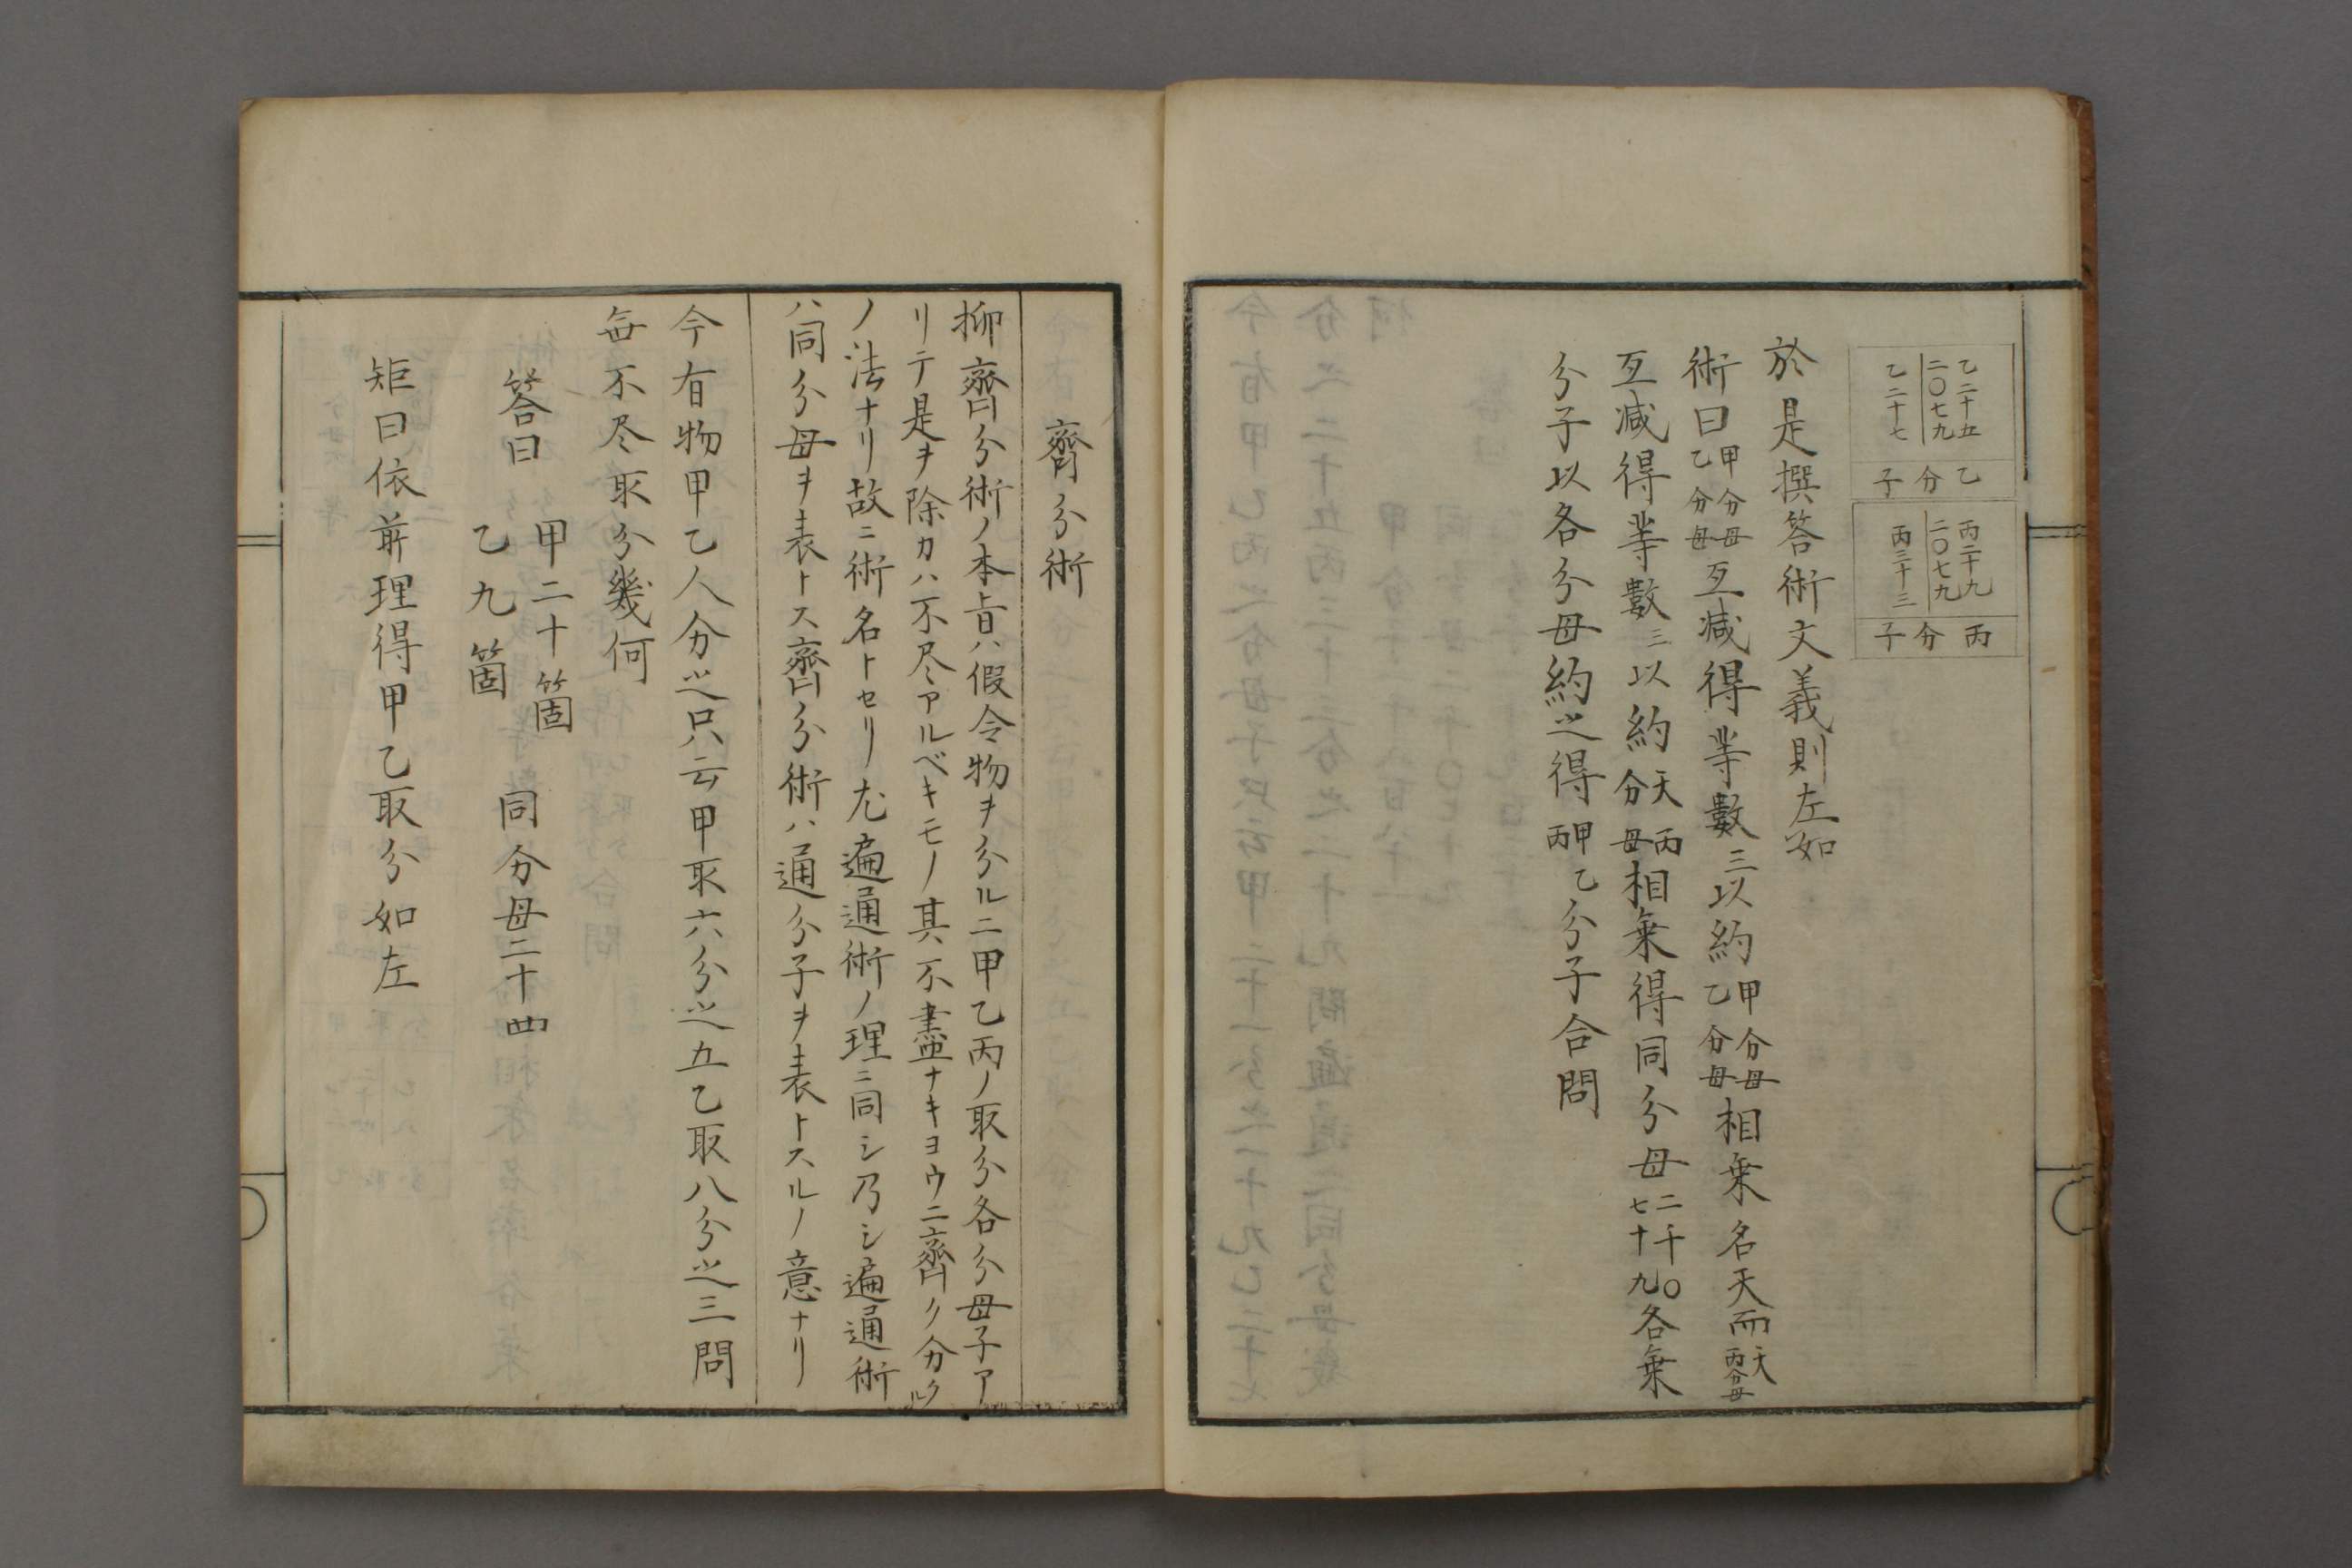 乙二十五
二〇七九
乙二十七
乙分子
丙二十九
二〇七九
丙三十三
丙分子
於是撰答術文義則左如
術曰甲分母乙分母互減得䓁數三以約甲分母乙分母相乗名天而天丙分母
互減得䓁數三以約天分丙母相乗得同分母二千〇七十九各乗
分子以各分母約之得甲丙乙分子合問
齊分術
抑齊分術ノ本旨ハ假令物ヲ分ルニ甲乙丙ノ取分各分母子ア
リテ是ヲ除カハ不尽アルベキモノ其不盡ナキヨウニ齊ク分クル
ノ法ナリ故ニ術名トセリ尤遍通術ノ理ニ同シ乃シ遍通術
ハ同分母ヲ表トス齊分術ハ通分子ヲ表トスルノ意ナリ
今有物甲乙人分之只云甲取六分之五乙取八分之三問
毎不尽取分幾何
答曰 甲二十箇 乙九箇 同分母二十四
矩曰依前理得甲乙取分如左